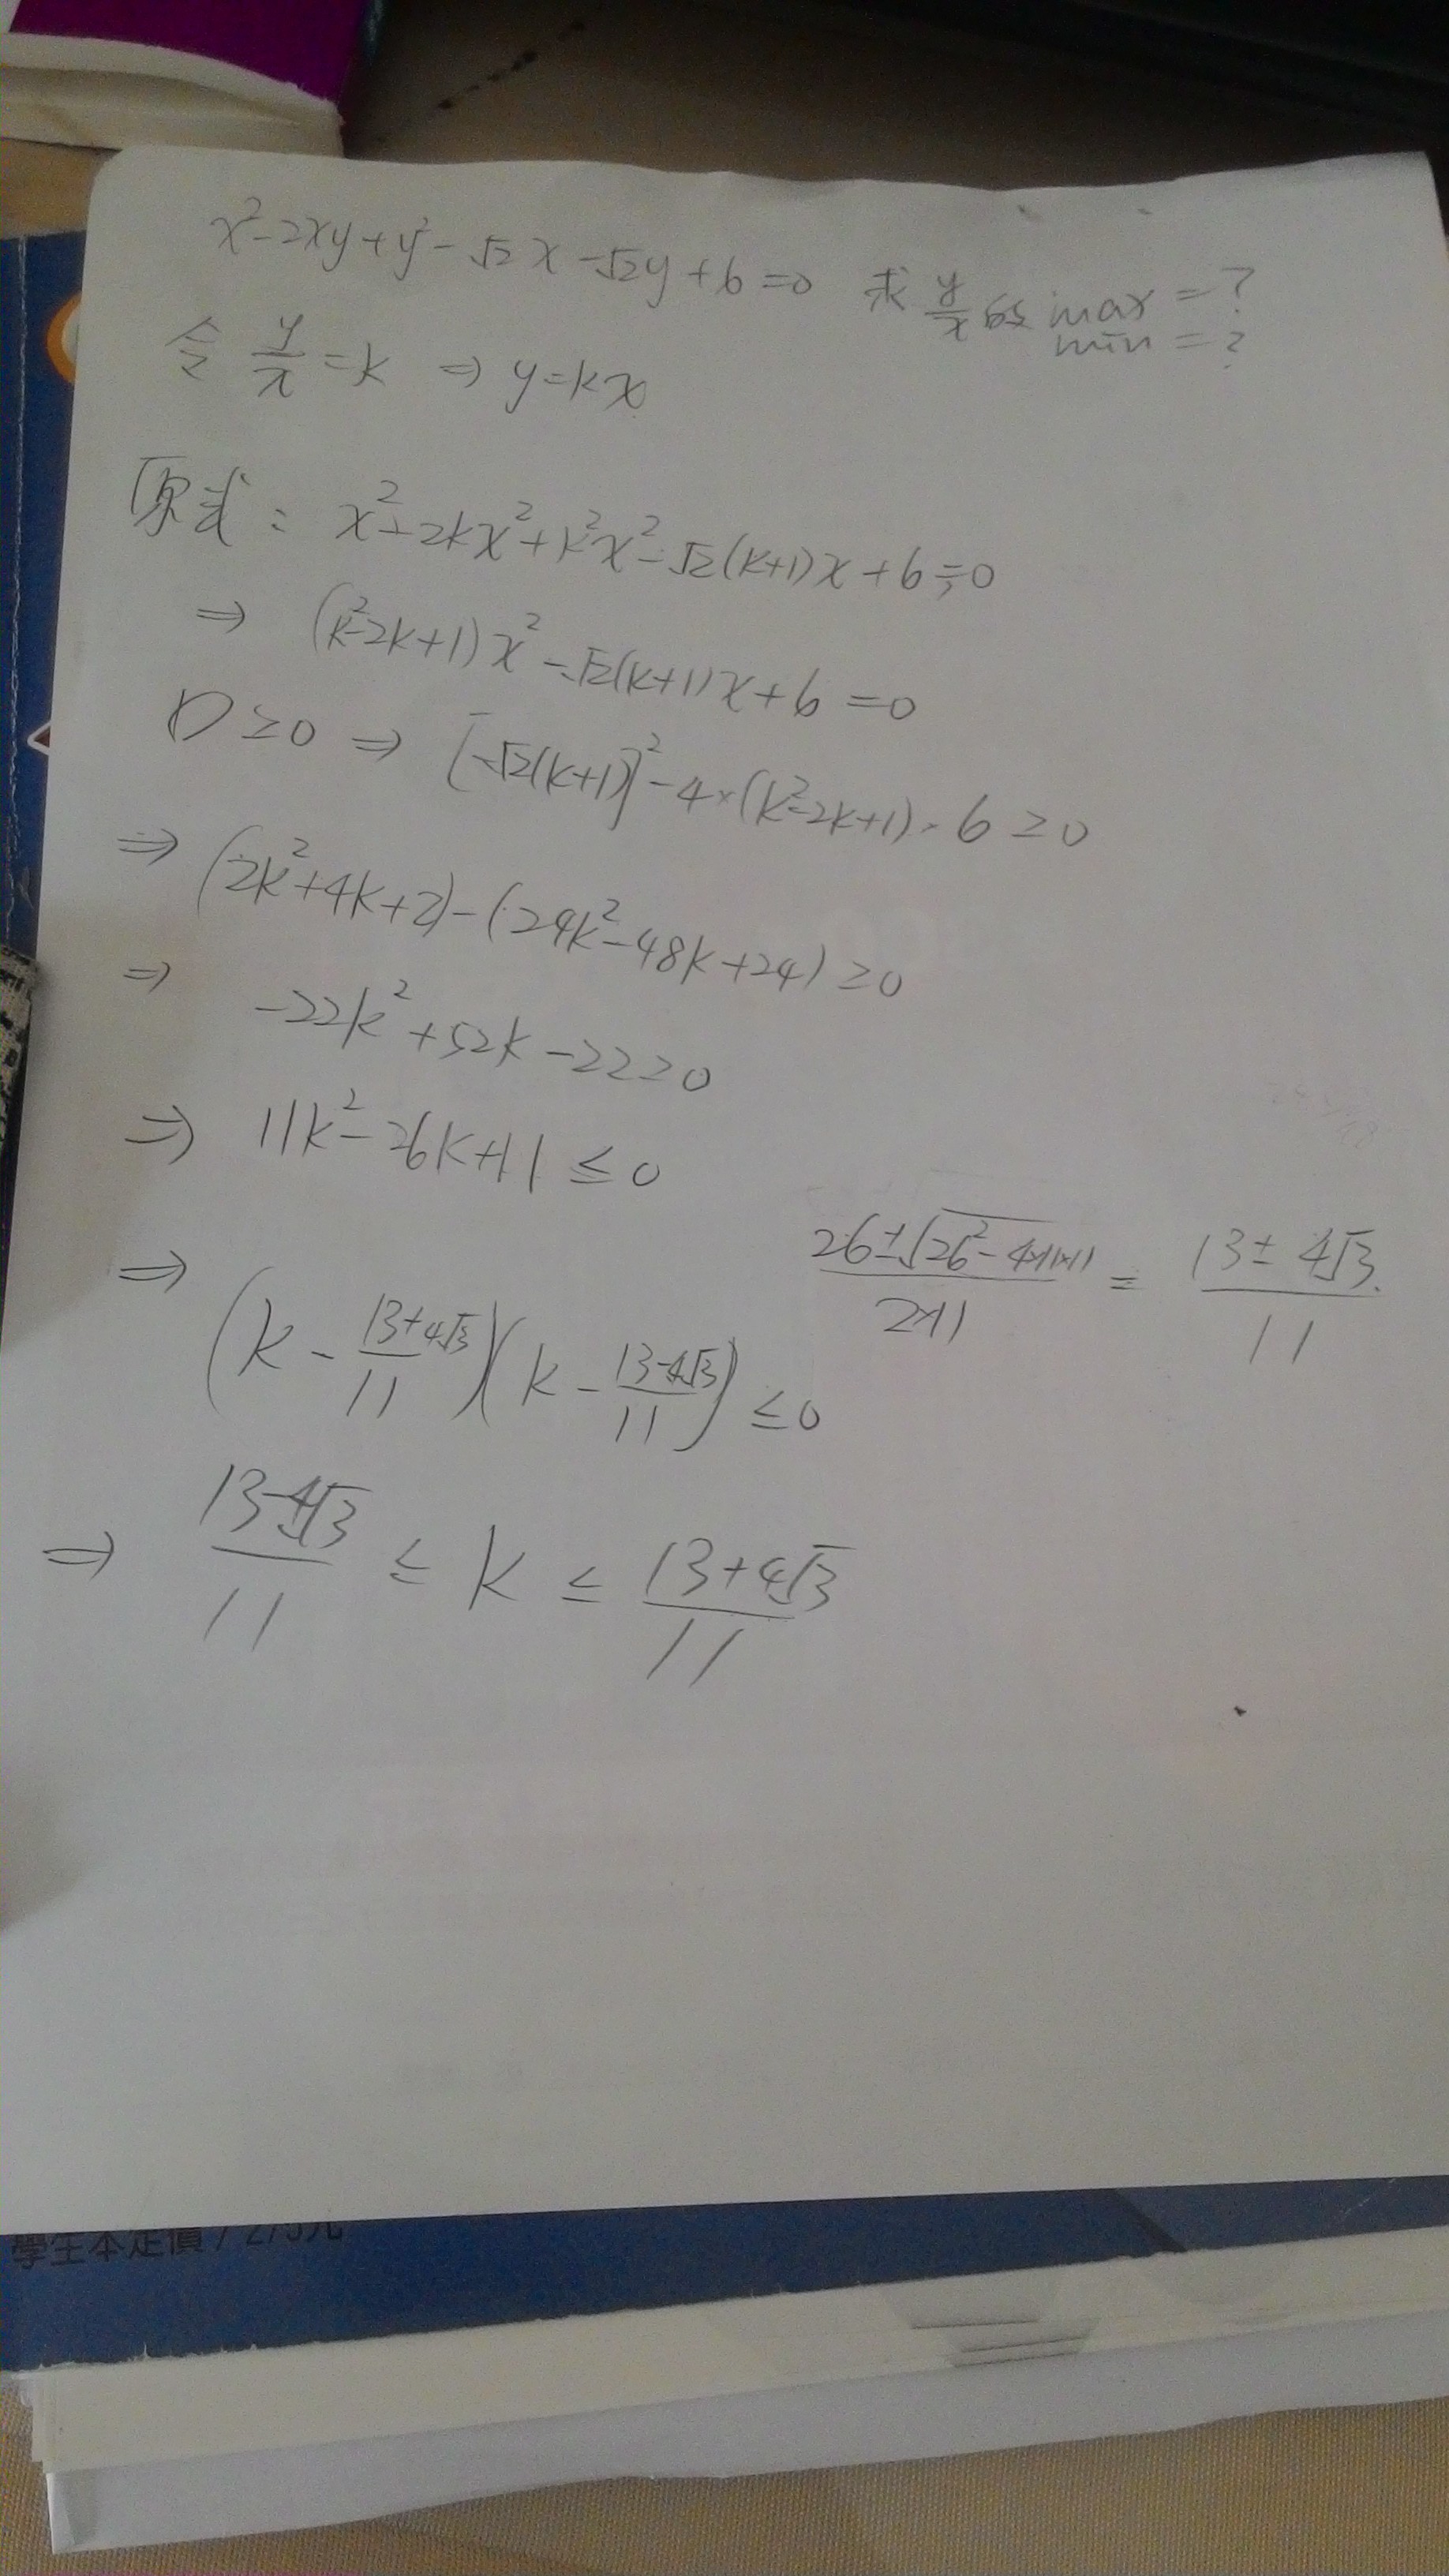 x²-2xy+y²-√2x-√2y+6=0 求 y/x 的 max=?
min=?
令 y/x=k ⇒ y=kx
原式: x²-2kx²+k²x²-√2(k+1)x+6=0
⇒ (k²-2k+1)x²-√2(k+1)x+6=0
D≥0 ⇒ [-√2(k+1)]²-4×(k²-2k+1)·6≥0
⇒ (2k²+4k+2)-(24k²-48k+24)≥0
⇒ -22k²+52k-22≥0
⇒ 11k²-26k+11≤0
(26±√(26²-4×11×11))/(2×11) = (13±4√3)/11
⇒ (k-(13+4√3)/11)(k-(13-4√3)/11)≤0
⇒ (13-4√3)/11 ≤ k ≤ (13+4√3)/11
學生本定價/275元